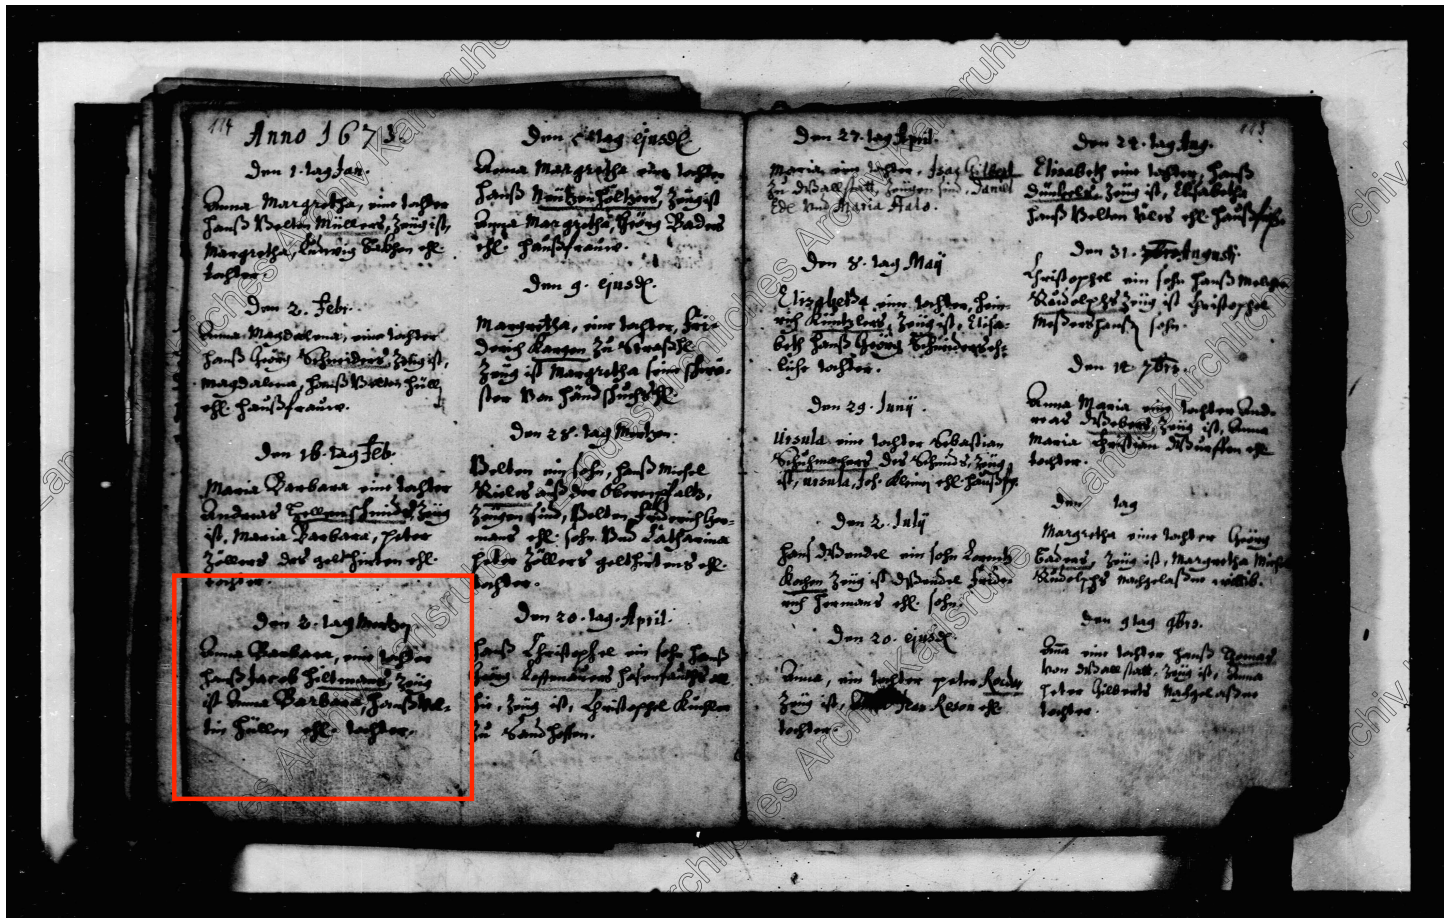 114
Anno 1673.
Den 1. tag Jan.
Anna Margretha, eine tochter
Hanß Velten Müllers, Zeüg ist,
Margretha, Ludwig ehl.
tochter.
Den 2. Febr.
Anna Magdalena, eine tochter
Hanß Georg Schneiders, Zeüg ist,
Magdalena, Hanß Velten Hüll
ehl. haußfrauw.
Den 16. tag Feb.
Maria Barbara eine tochter
Andreas Zeüg
ist, Maria Barbara, Peter
Zöllers des gelthirten ehl.
tochter.
Den 2. tag Mertzen
Anna Barbara, eine tochter
Hanß Jacob Holtzmans, Zeüg
ist Anna Barbara, Hanß Vel-
tin Hüllen ehl. tochter.
Den tag ejusd.
Anna Margretha eine tochter
Hanß Zeüg ist
Anna Margretha, Georg Baders
ehl. haußfrauw.
Den 9. ejusd.
Margretha, eine tochter, Fri-
derich Kargen zu Straßh.
Zeüg ist Margretha seine schwe-
ster von Handschuchsh.
Den 28. tag Mertzen.
Velten ein sohn, Hanß Michel
Rieles auß der Oberenpfaltz,
Zeügen sind, Velten, Friderich Her-
mans ehl. sohn. Und Catharina
Peter Zöllers gelthirtens ehl.
tochter.
Den 20. tag April.
Hanß Christophel ein sohn Hanß
Georg hasenfauths all
hie, Zeüg ist, Christophel
zu Sandhoffen.
Den 27. tag April.
Maria eine tochter, Isaq Gilbert
zu Wallstatt, Zeügen sind, Daniel
Edl und Maria
Den 8. tag Maÿ
Elizabetha eine tochter, Hein-
rich Küntzlers, Zeüg ist, Elisa-
beth Hanß Georg Schneiders eh-
liche tochter.
Den 29. Junÿ.
Ursula eine tochter Sebastian
Schuhmachers des Schmids, Zeüg
ist, Ursula, Joh. Kleinen ehl. haußfr.
Den 2. Julÿ
Hans Wendel ein sohn Lorentz
Kochen Zeüg ist Wendel Fride-
rich Hermans ehl. sohn.
Den 20. ejusd.
Anna, ein tochter Peter
Zeüg ist, Jean ehl.
tochter.
113
Den 24. tag Aug.
Elisabeth eine tochter, Hanß
Dünckels Zeüg ist, Elisabetha
Hanß Velten ehl. haußfr.
Den 31. Augusti.
Christophel ein sohn Hanß Melcher
Rudolphs Zeüg ist Christophel
sohn.
Den 14. 7bris.
Anna Maria eine tochter And-
reas Webers, Zeüg ist, Anna
Maria Christian ehl.
tochter.
Den tag
Margretha eine tochter Georg
Baders, Zeüg ist, Margretha Michel
Rudolphs nachgelaßne wittib.
Den 9 tag 9bris.
Anna eine tochter Hanß Thomas
von Wallstatt, Zeüg ist, Anna
Peter Gilberts nachgelaßne
tochter.